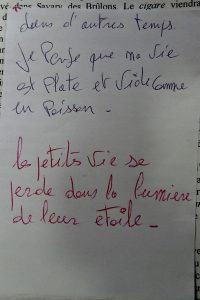 vé dans Savary des Brûlons. Le cigare viendra
dans d'autres temps.
Je Pense que ma vie
est Plate et Vide Comme
en Poisson.
les petits Vie se
perde dans la lumière
de leur etoile.